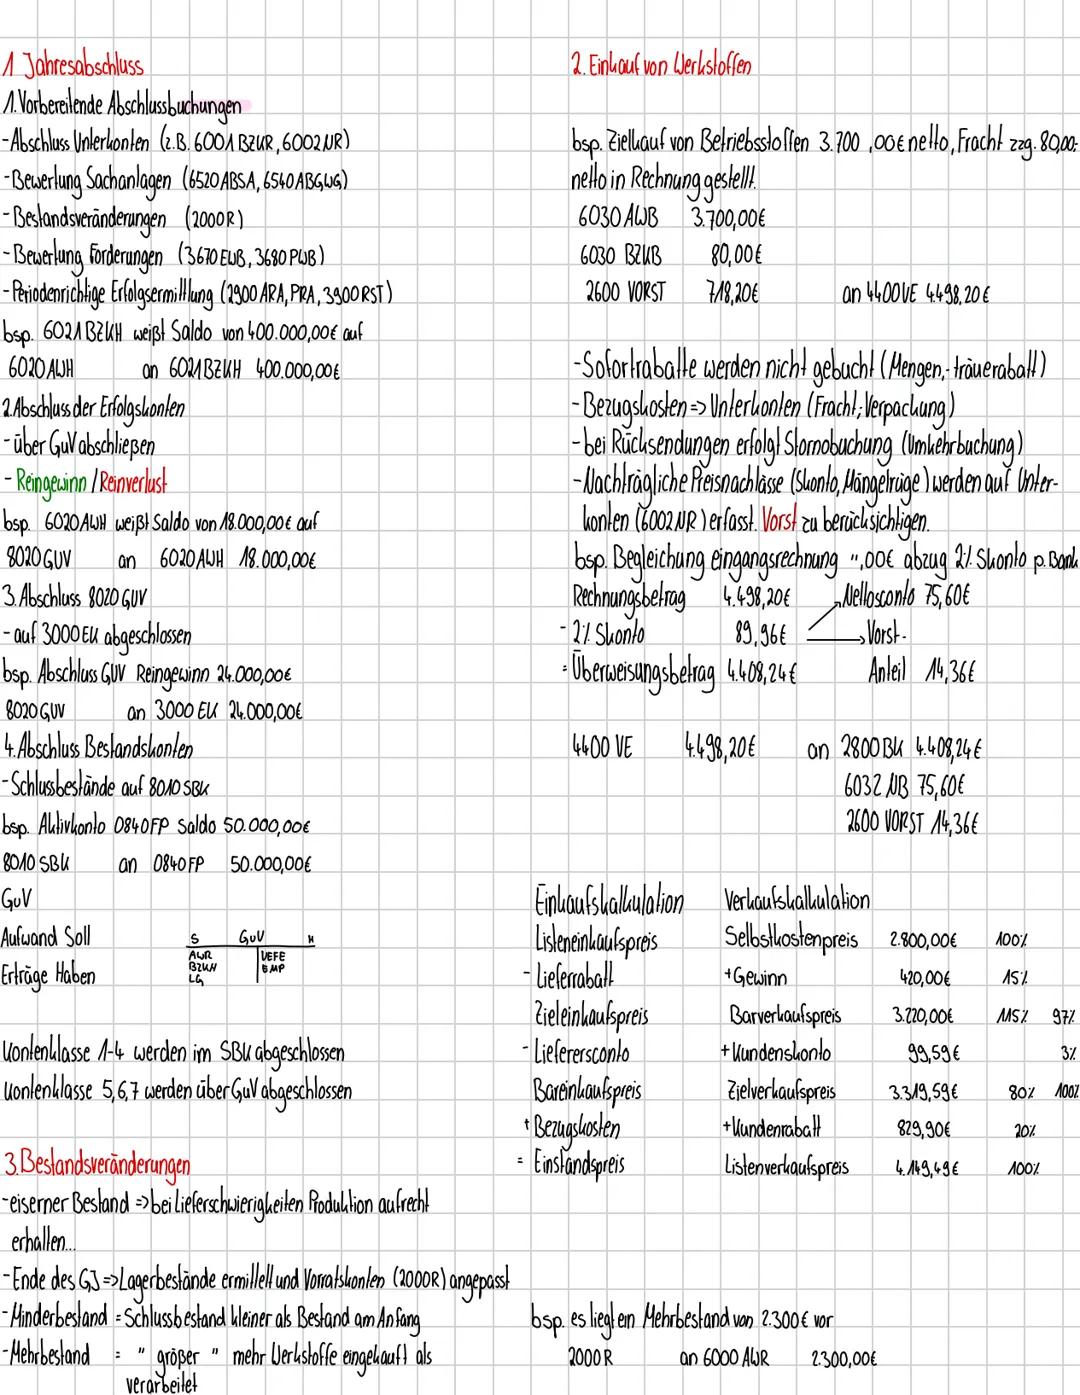 1 Jahresabschluss
1. Vorbereitende Abschlussbuchungen
-Abschluss Unterkonten (z.B. 6001 BZKR, 6002 NR)
-Bewertung Sachanlagen (6520 ABSA, 6540 ABGWG)
-Bestandsveränderungen (2000R)
-Bewertung Forderungen (3670 EWB, 3680 PWB)
-Periodenrichtige Erfolgsermittlung (2900 ARA, PRA, 3900 RST)
bsp. 6021 BZKH weißt Saldo von 400.000,00€ auf
6020 AWH an 6021 BZKH 400.000,00€
2. Abschluss der Erfolgskonten
-über GuV abschließen
- Reingewinn / Reinverlust
bsp. 6020 AWH weißt Saldo von 18.000,00€ auf
8020 GUV an 6020 AWH 18.000,00€
3. Abschluss 8020 GUV
-auf 3000 EK abgeschlossen
bsp. Abschluss GUV Reingewinn 24.000,00€
8020 GUV an 3000 EK 24.000,00€
4. Abschluss Bestandskonten
-Schlussbestände auf 8010 SBK
bsp. Aktivkonto 0840 FP Saldo 50.000,00€
8010 SBK an 0840 FP 50.000,00€
GuV
Aufwand Soll
Erträge Haben
S GuV H
AWR UEFE
BZKH EMP
LG
Kontenklasse 1-4 werden im SBK abgeschlossen
Kontenklasse 5,6,7 werden über GuV abgeschlossen
3. Bestandsveränderungen
-eiserner Bestand => bei Lieferschwierigkeiten Produktion aufrecht
erhalten...
-Ende des GJ => Lagerbestände ermittelt und Vorratskonten (2000R) angepasst
-Minderbestand = Schlussbestand kleiner als Bestand am Anfang
-Mehrbestand = " größer " mehr Werkstoffe eingekauft als
verarbeitet
2. Einkauf von Werkstoffen
bsp. Zielkauf von Betriebsstoffen 3.700,00€ netto, Fracht zzg. 80,00:
netto in Rechnung gestellt.
6030 AWB 3.700,00€
6030 BZKB 80,00€
2600 VORST 718,20€ an 4400 VE 4.498,20€
-Sofortrabatte werden nicht gebucht (Mengen,- träuerabatt)
-Bezugskosten => Unterkonten (Fracht; Verpackung)
-bei Rücksendungen erfolgt Stornobuchung (Umkehrbuchung)
-Nachträgliche Preisnachlässe (Skonto, Mängelrüge) werden auf Unter-
konten (6002 NR) erfasst. Vorst zu berücksichtigen.
bsp. Begleichung eingangsrechnung ",00€ abzug 2% Skonto p. Bank
Rechnungsbetrag 4.498,20€ Nettosconto 75,60€
- 2% Skonto 89,96€ Vorst.-
= Überweisungsbetrag 4.408,24€ Anteil 14,36€
4400 VE 4.498,20€ an 2800 BK 4.408,24€
6032 NB 75,60€
2600 VORST 14,36€
Einkaufskalkulation
Listeneinkaufspreis
- Lieferrabatt
Zieleinkaufspreis
- Lieferersconto
Bareinkaufspreis
+ Bezugskosten
= Einstandspreis
Verkaufskalkulation
Selbstkostenpreis 2.800,00€ 100%
+Gewinn 420,00€ 15%
Barverkaufspreis 3.220,00€ 115% 97%
+Kundenskonto 99,59€ 3%
Zielverkaufspreis 3.319,59€ 80% 100%
+Kundenrabatt 829,90€ 20%
Listenverkaufspreis 4.149,49€ 100%
bsp. es liegt ein Mehrbestand von 2.300€ vor
2000 R an 6000 AWR 2.300,00€